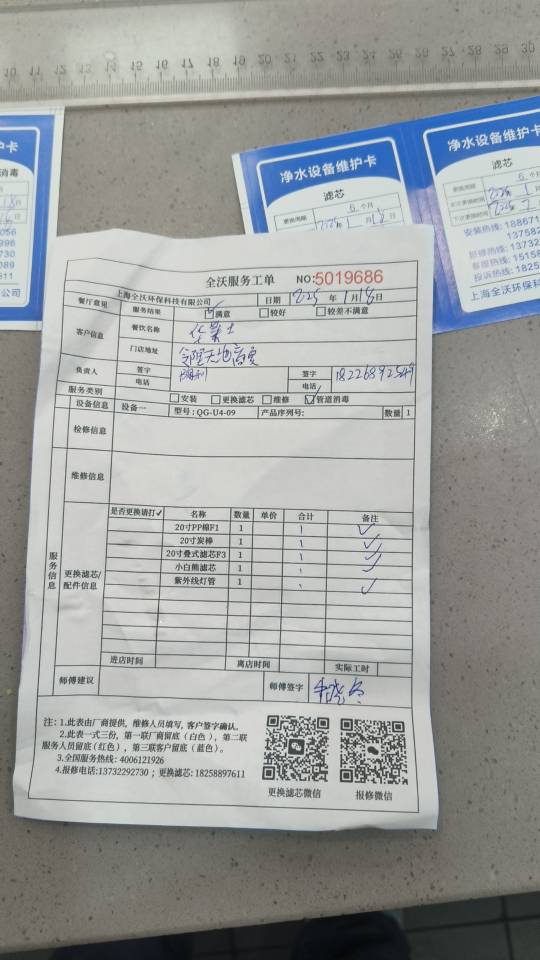 10 11 12 13 14 15 16 17 18 19 20 21 22 23 24 25 26 27 28 29 30
护卡
消毒
056
996
730
089
811
公司
净水设备维护卡
滤芯
更换周期 6 个月
净水设备维护卡
滤芯
更换周期 6 个月
本次更换时间
下次更换时间
安装热线: 188671
13758
报修热线: 13732
客服热线: 15158
投诉热线: 18258
上海全沃环保科
全沃服务工单 NO:5019686
上海全沃环保科技有限公司 日期 2025 年 1 月 18 日
餐厅意见 服务结果 满意 较好 较差不满意
客户信息 餐饮名称
门店地址
负责人 签字 签字
电话 电话
服务类别 安装 更换滤芯 维修 管道消毒
设备信息 设备一 型号: QG-U4-09 产品序列号: 数量 1
检修信息
维修信息
服务信息
更换滤芯/配件信息
是否更换请打✓ 名称 数量 单价 合计 备注
20寸PP棉F1 1 ✓
20寸炭棒 1 ✓
20寸叠式滤芯F3 1 ✓
小白熊滤芯 1 ✓
紫外线灯管 1 ✓
进店时间 离店时间 实际工时
师傅建议 师傅签字
注: 1.此表由厂商提供, 维修人员填写, 客户签字确认。
2.此表一式三份, 第一联厂商留底(白色), 第二联
服务人员留底(红色), 第三联客户留底(蓝色)。
3.全国服务热线: 4006121926
4.报修电话:13732292730 ; 更换滤芯: 18258897611
更换滤芯微信 报修微信